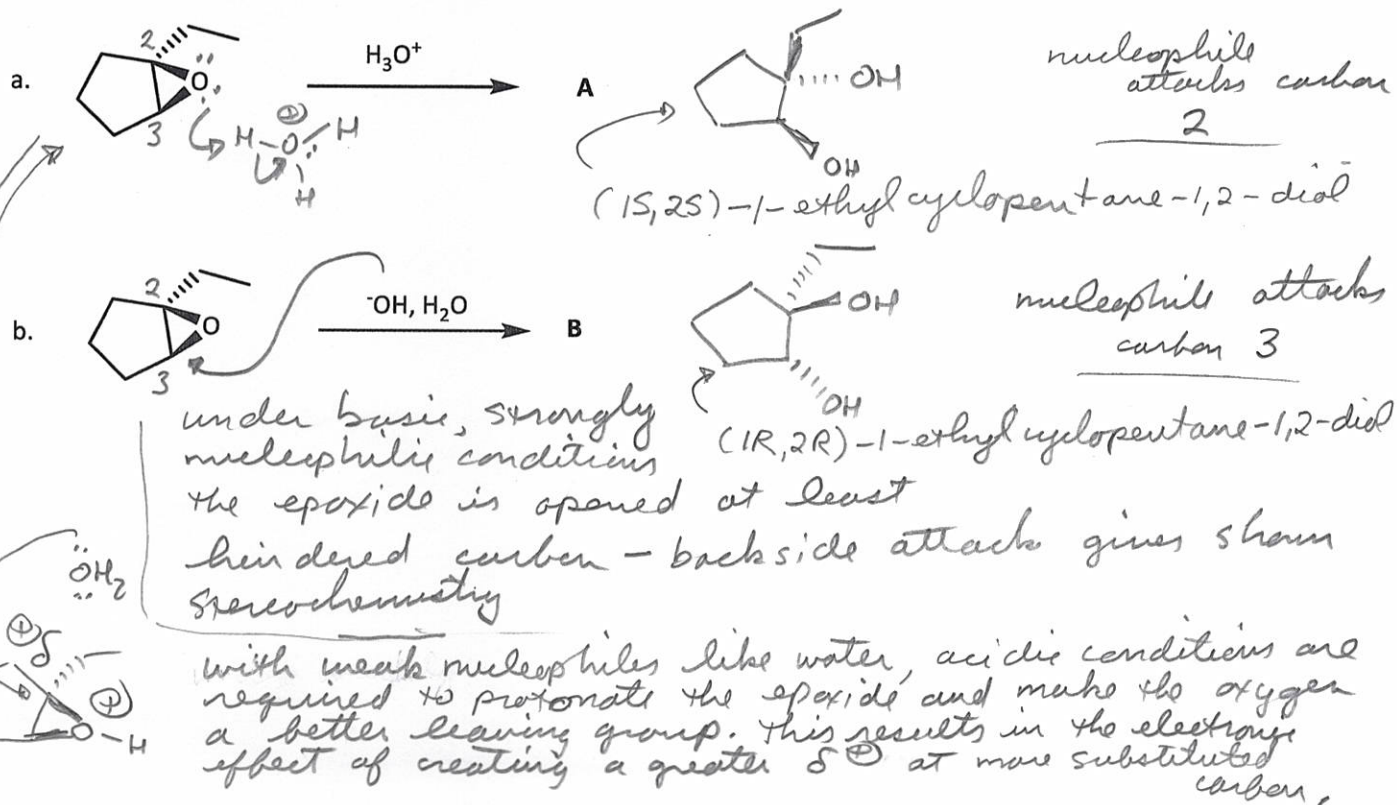 a.
2
3
O
H₃O⁺
H-O-H
⊕
H
A
OH
OH
nucleophile
attacks carbon
2
(1S,2S)-1-ethylcyclopentane-1,2-diol
b.
2
3
O
⁻OH, H₂O
B
OH
OH
nucleophile attacks
carbon 3
(1R,2R)-1-ethylcyclopentane-1,2-diol
under basic, strongly
nucleophilic conditions
the epoxide is opened at least
hindered carbon – backside attack gives shown
stereochemistry
ÖH₂
⊕δ
⊕
O-H
with weak nucleophiles like water, acidic conditions are
required to protonate the epoxide and make the oxygen
a better leaving group. This results in the electronic
effect of creating a greater δ⊕ at more substituted
carbon.